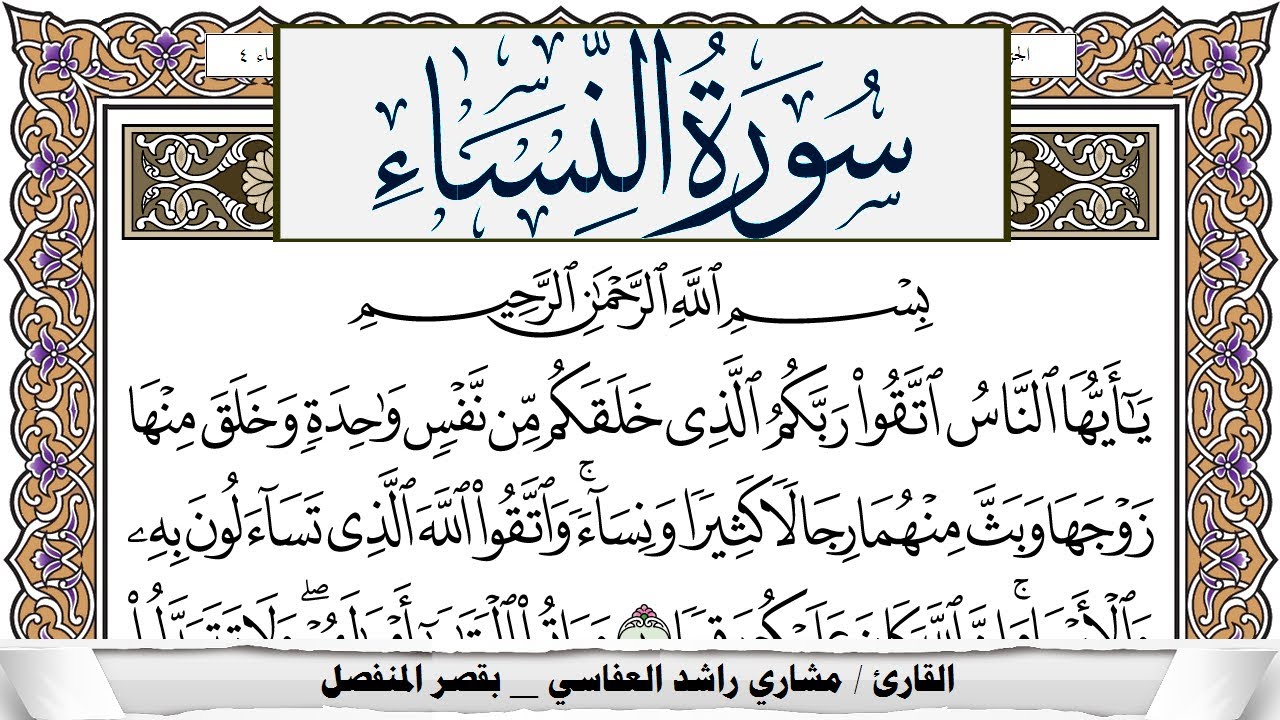 الجز
اء ٤
سُورَةُ النِّسَاءِ
بِسْمِ ٱللَّهِ ٱلرَّحْمَٰنِ ٱلرَّحِيمِ
يَٰٓأَيُّهَا ٱلنَّاسُ ٱتَّقُوا۟ رَبَّكُمُ ٱلَّذِى خَلَقَكُم مِّن نَّفْسٍ وَٰحِدَةٍ وَخَلَقَ مِنْهَا
زَوْجَهَا وَبَثَّ مِنْهُمَا رِجَالًا كَثِيرًا وَنِسَآءً ۚ وَٱتَّقُوا۟ ٱللَّهَ ٱلَّذِى تَسَآءَلُونَ بِهِۦ
القارئ / مشاري راشد العفاسي _ بقصر المنفصل